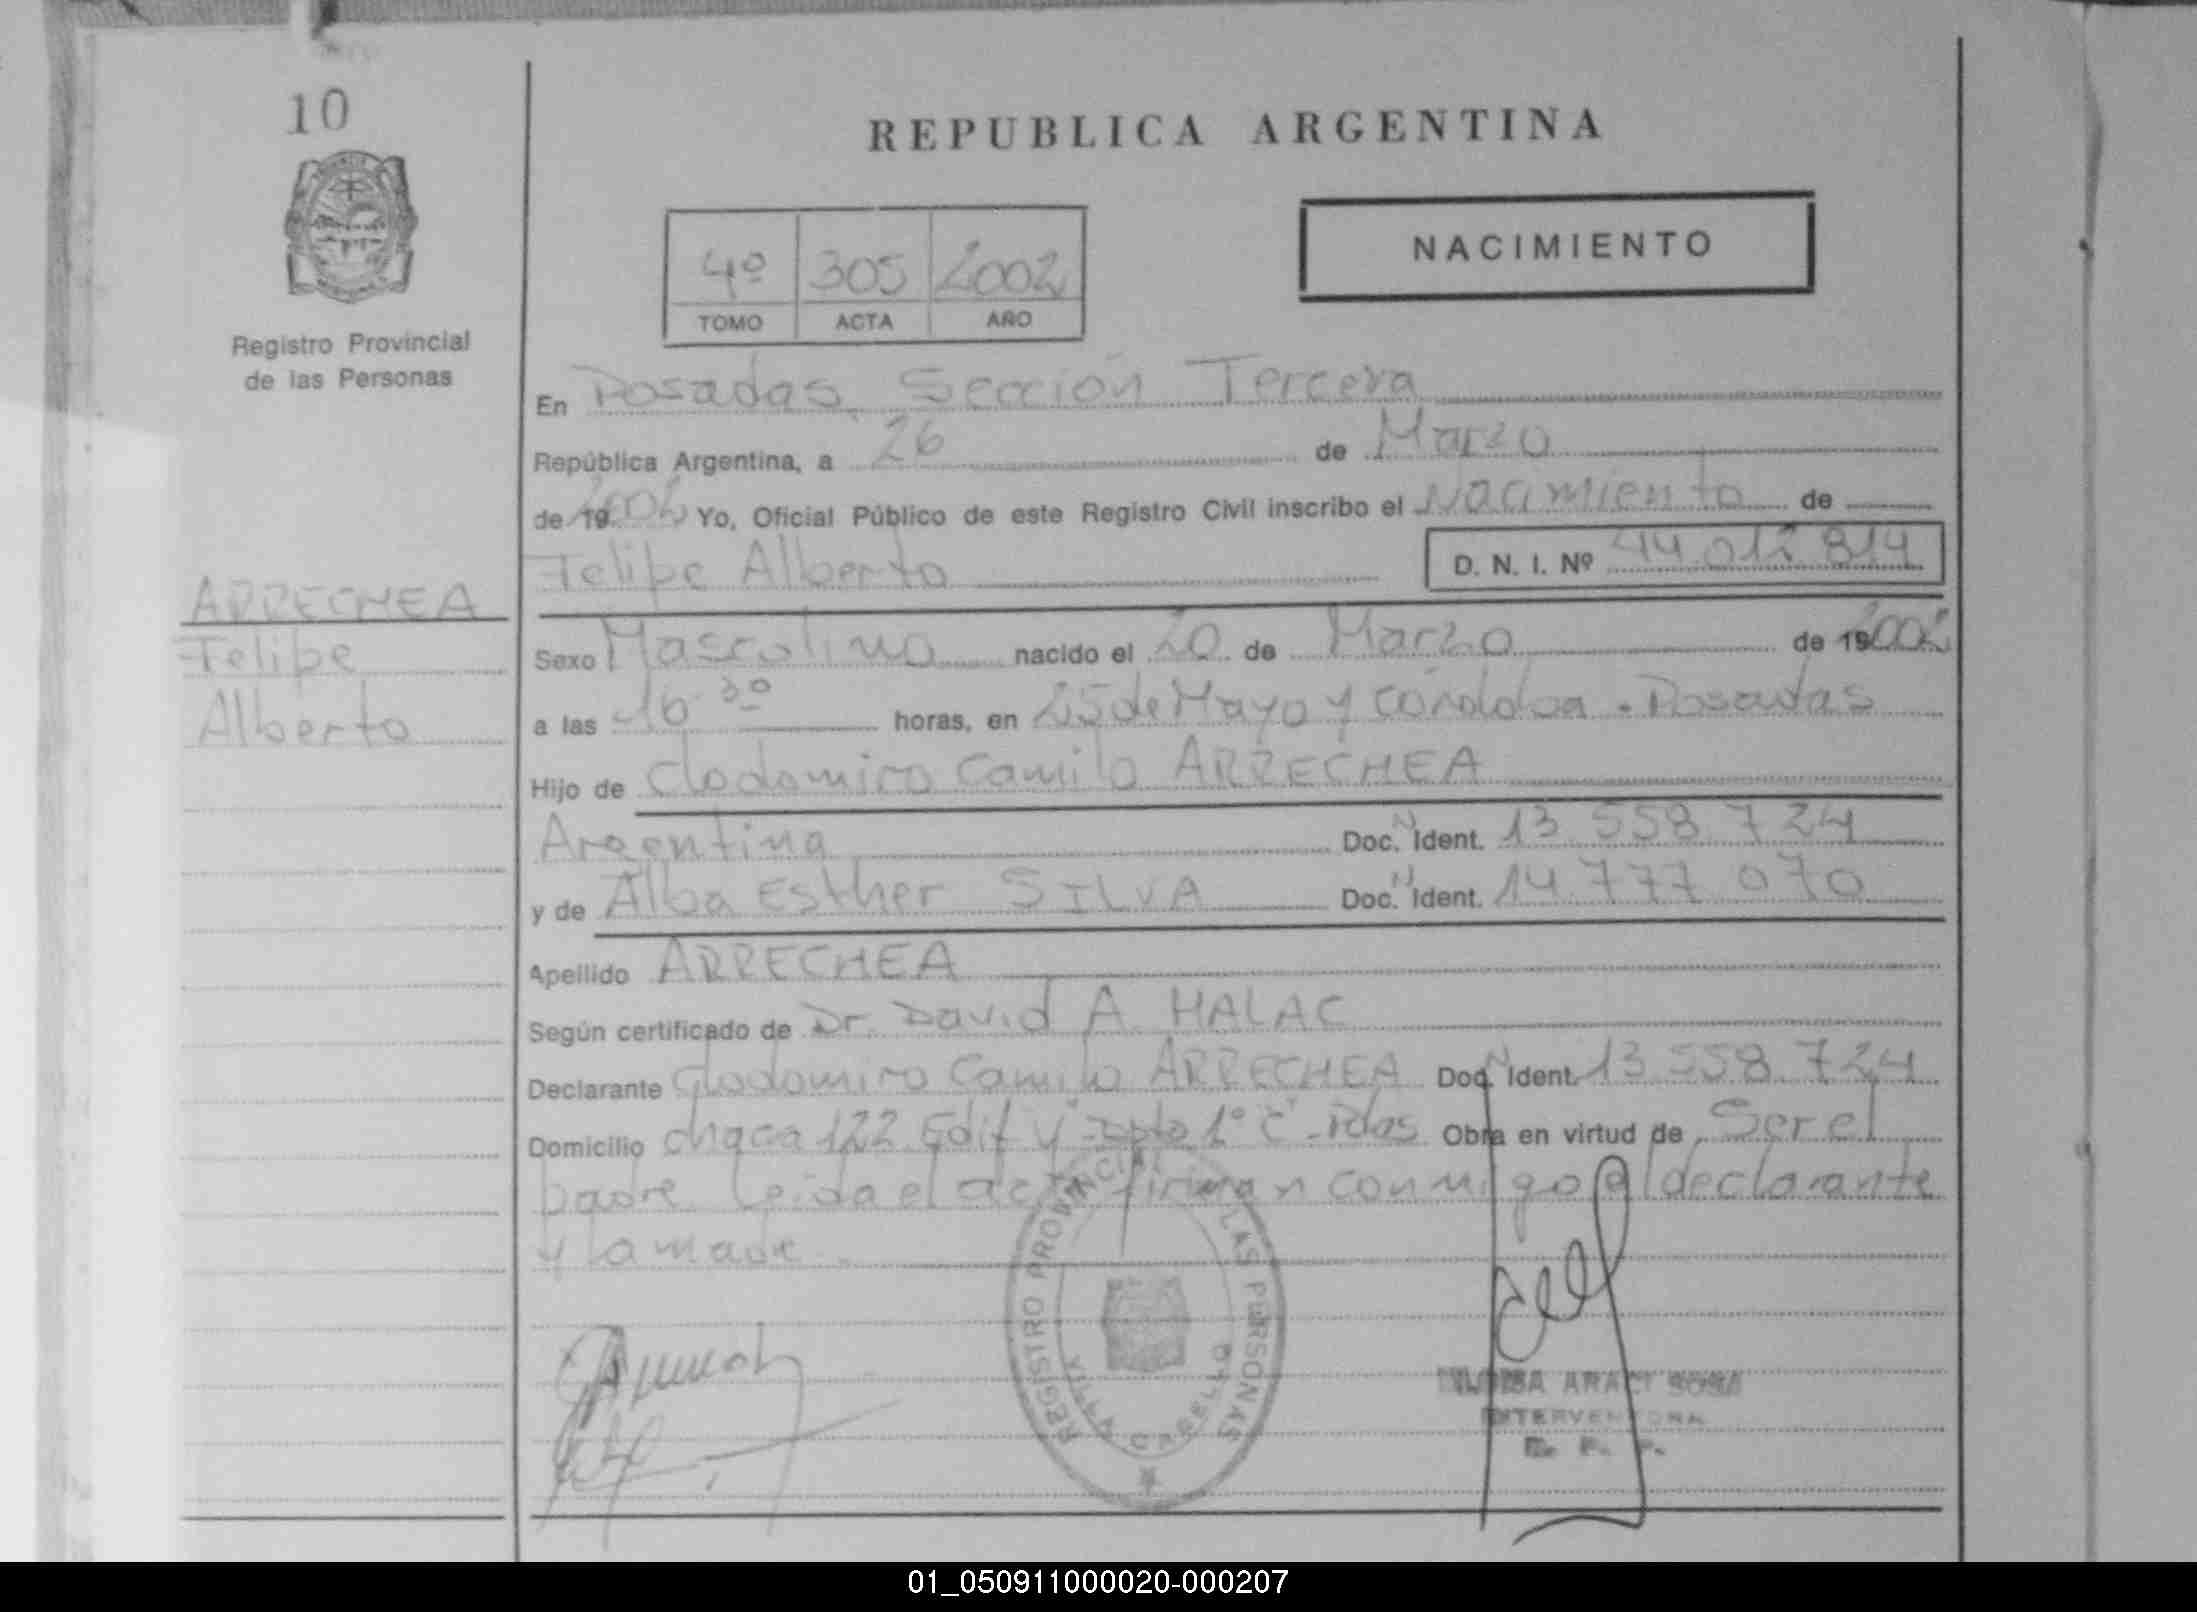 10
REPUBLICA ARGENTINA
NACIMIENTO
4º 305 2002
TOMO ACTA AÑO
Registro Provincial
de las Personas
En Posadas, Sección Tercera
República Argentina, a 26 de Marzo
de 19 2002 Yo, Oficial Público de este Registro Civil inscribo el Nacimiento de
Felipe Alberto D. N. I. Nº 44.012.814
ARRECHEA
Felipe
Alberto
Sexo Masculino nacido el 20 de Marzo de 19 2002
a las 16 30 horas, en 25 de Mayo y Córdoba - Posadas
Hijo de Clodomiro Camilo ARRECHEA
Argentina Doc. N Ident. 13.558.724
y de Alba Esther SILVA Doc. N Ident. 14.777.070
Apellido ARRECHEA
Según certificado de Dr. David A. HALAC
Declarante Clodomiro Camilo ARRECHEA Doc. N Ident. 13.558.724
Domicilio chacra 122 Edif y dpto 1º "C" - Pdas Obra en virtud de Ser el
padre. Leída el acta firman conmigo el declarante
y la madre.
REGISTRO PROVINCIAL LAS PERSONAS
VILLA CABELLO
ARACI SOSA
INTERVENTORA
R. P. P.
01_050911000020-000207